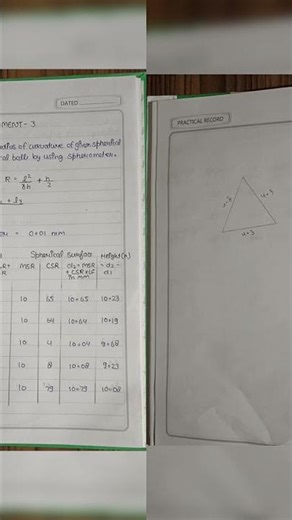 DATED
MENT - 3
radius of curvature of given spherical
al ball by using spherometer.
R = l²/8h + h/2
+ l3
= 0.01 mm
Spherical surface Height(h)
MSR CSR d2 = MSR = d2 -
+ CSR × LC d1
in mm
10 65 10.65 10.23
10 64 10.64 10.19
10 4 10.04 9.68
10 8 10.08 9.23
10 79 10.79 10.08
PRACTICAL RECORD
4.3
4.3